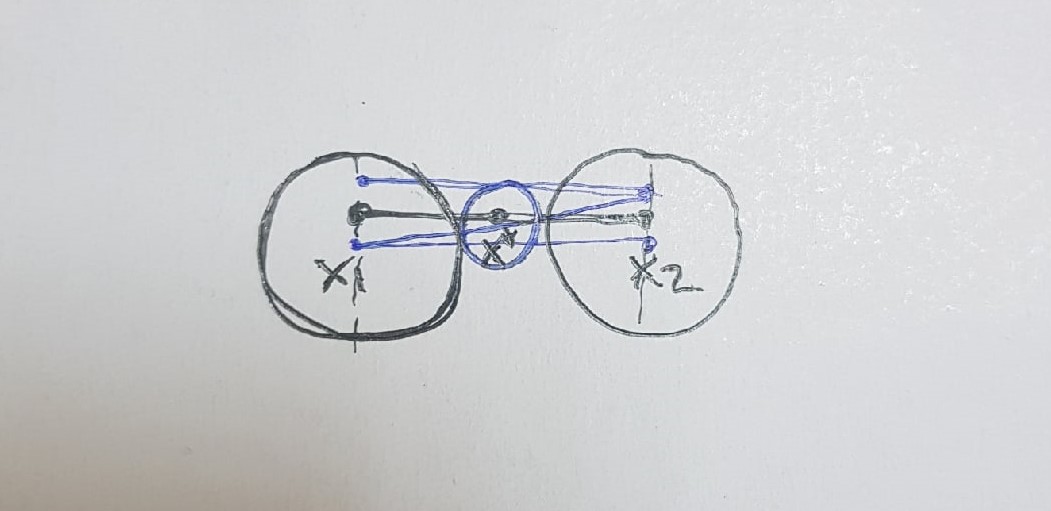 X1
X*
X2